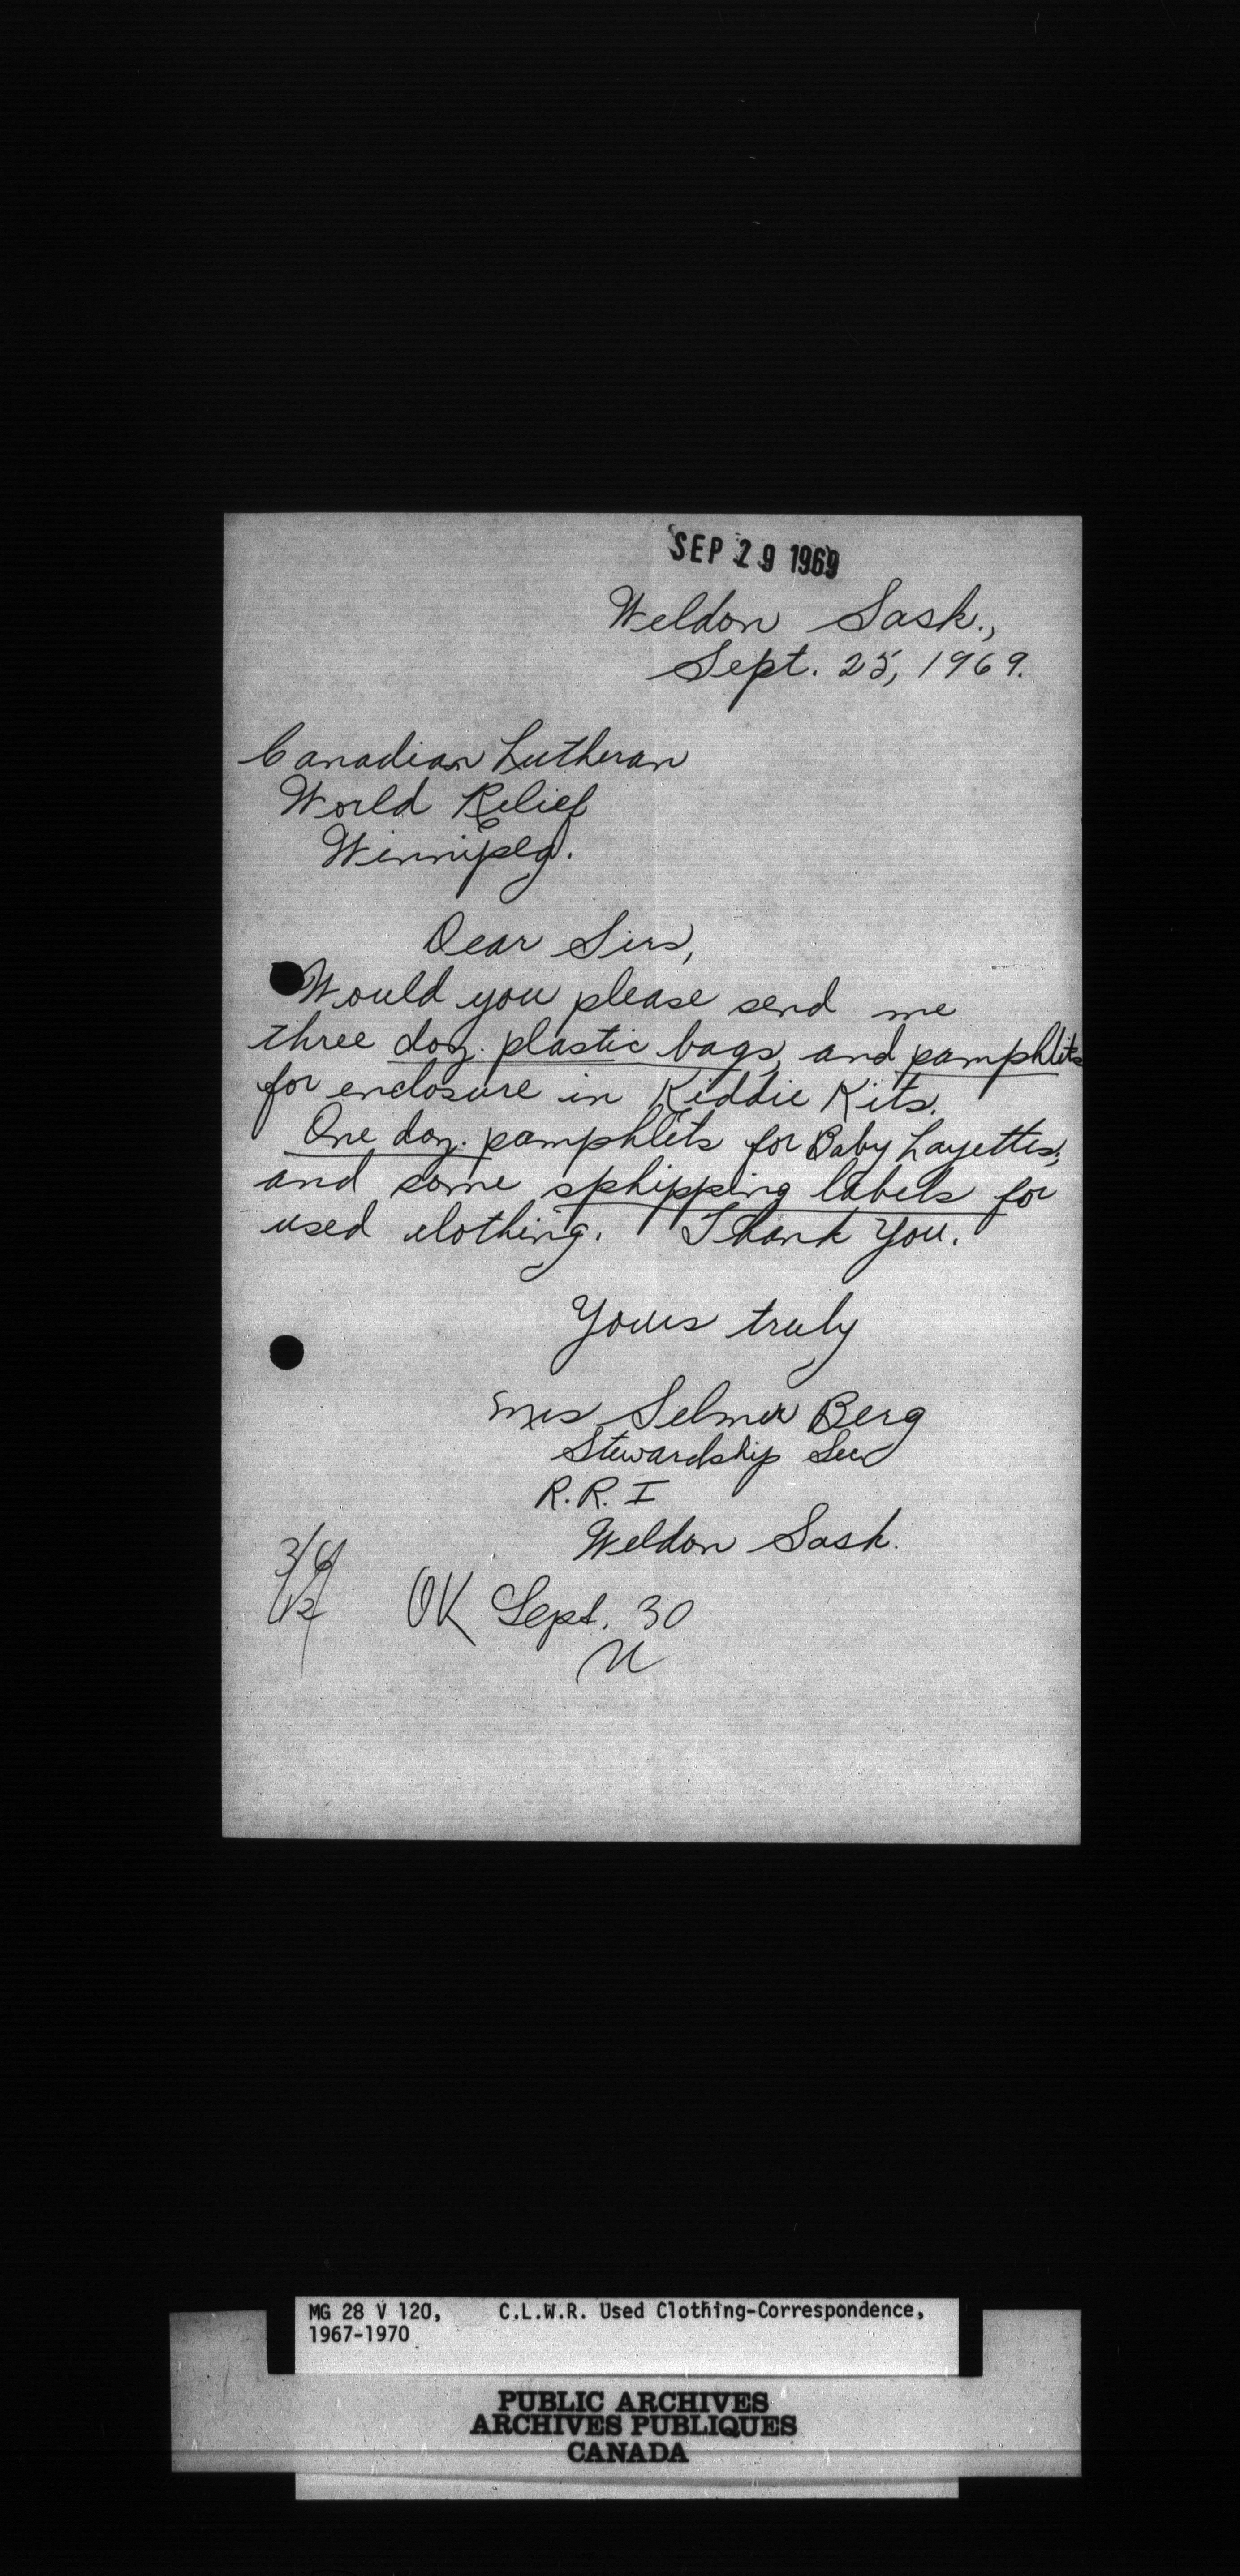 SEP 29 1969
Weldon Sask.,
Sept. 25, 1969.
Canadian Lutheran
World Relief
Winnipeg.
Dear Sirs,
Would you please send me
three doz. plastic bags, and pamphlets
for enclosure in Kiddie Kits.
One doz. pamphlets for Baby Layettes;
and some sphipping labels for
used clothing. Thank You.
Yours truly
Mrs Selmer Berg
Stewardship Sec
R.R. I
Weldon Sask.
OK Sept. 30
MG 28 V 120, C.L.W.R. Used Clothing-Correspondence,
1967-1970
PUBLIC ARCHIVES
ARCHIVES PUBLIQUES
CANADA